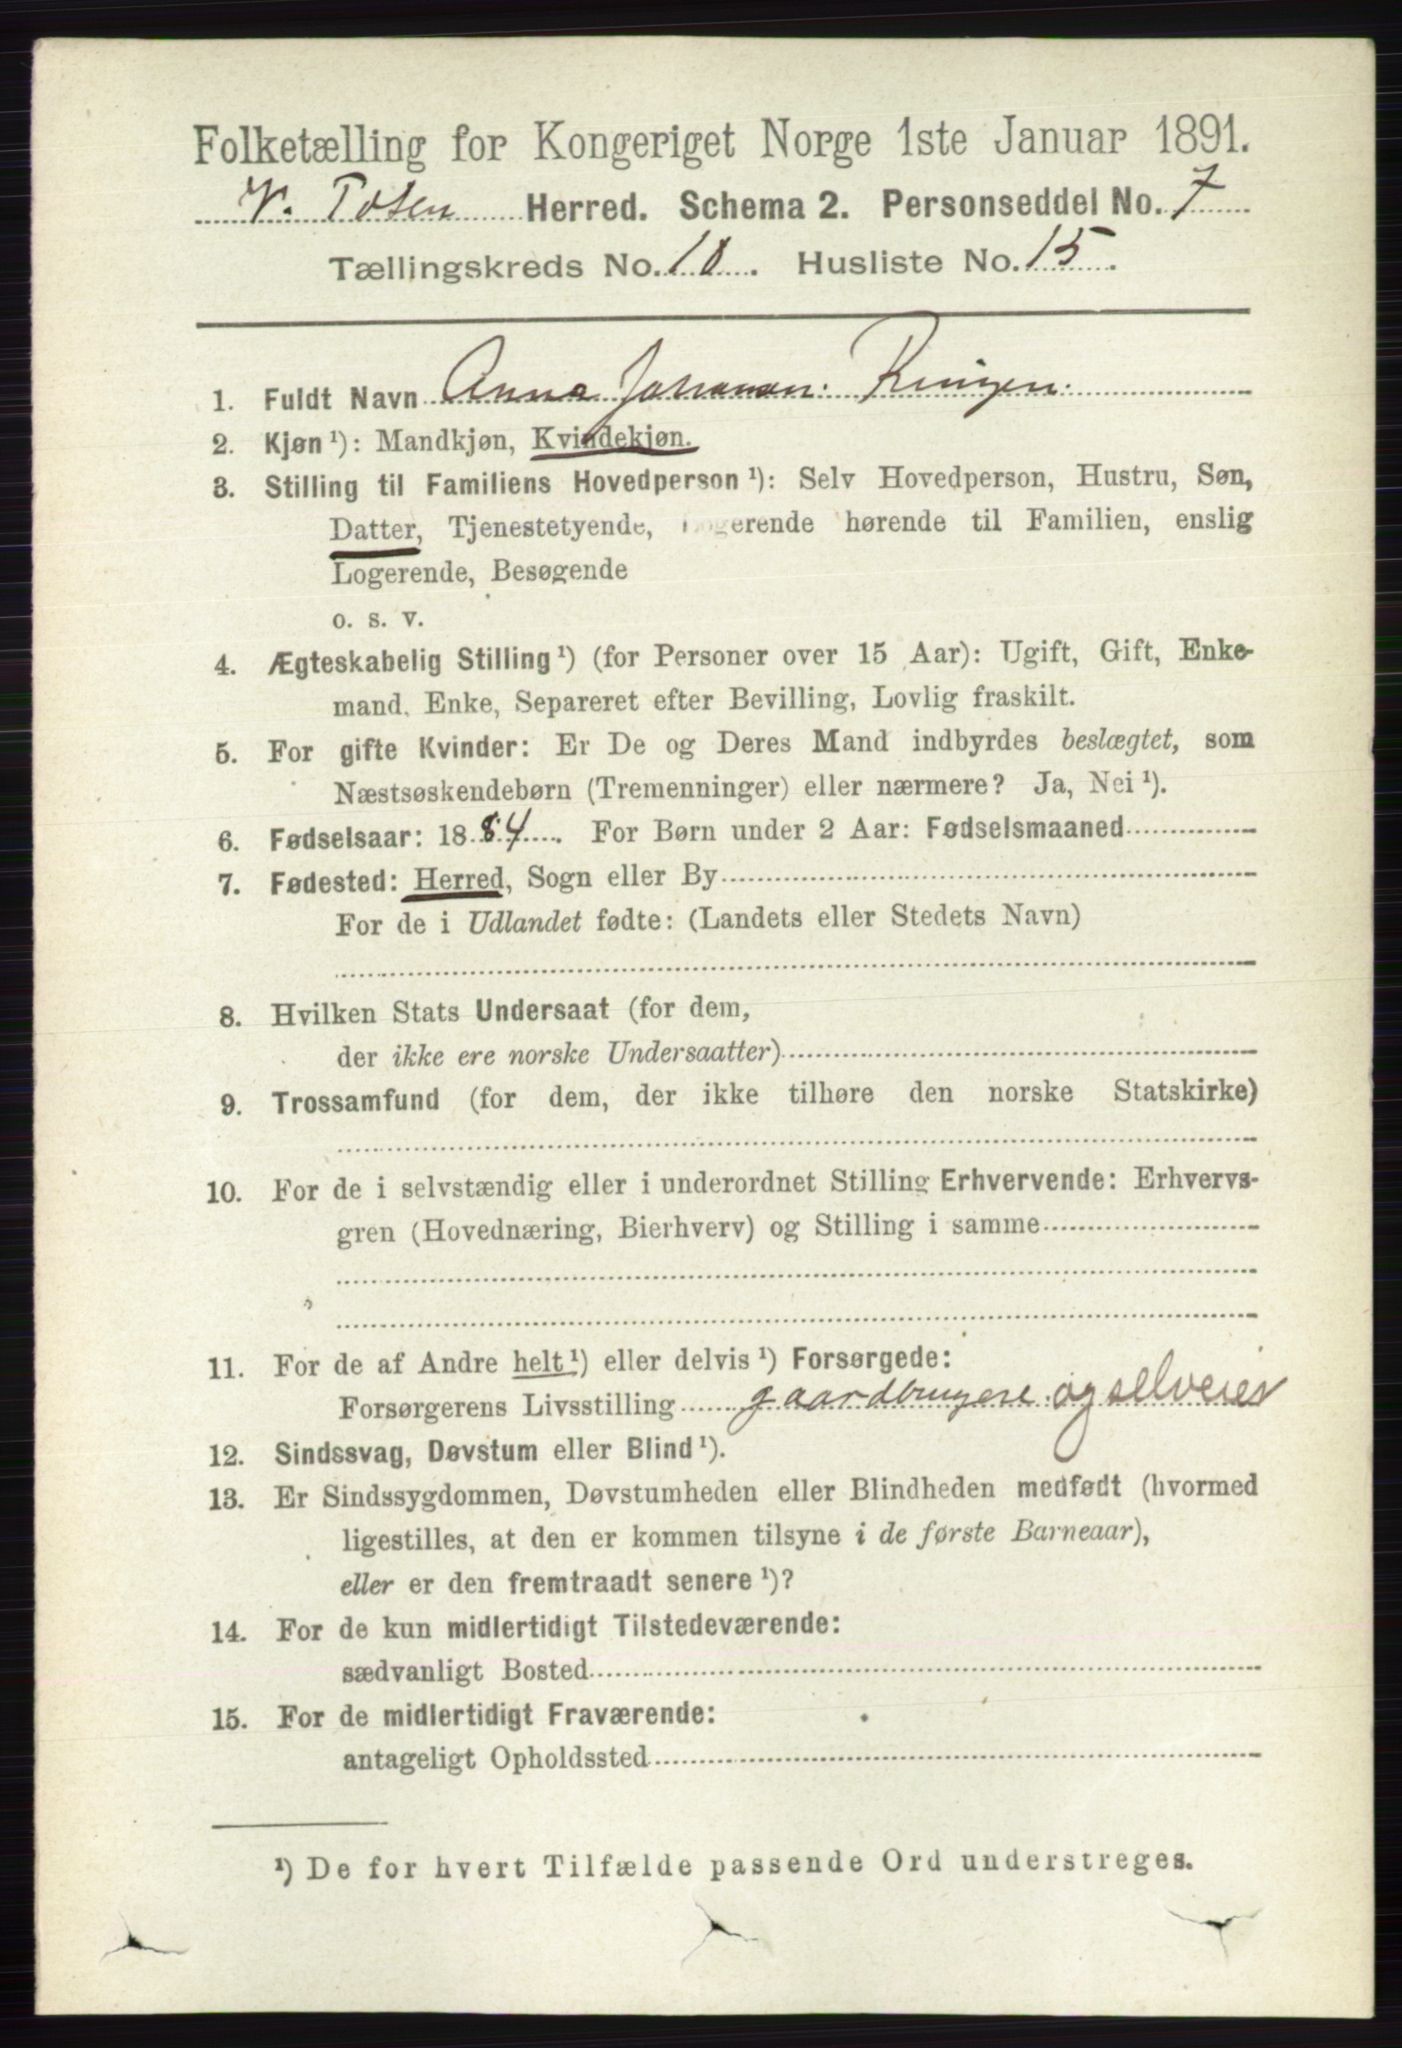 Folketælling for Kongeriget Norge 1ste Januar 1891.
V. Toten Herred. Schema 2. Personseddel No. 7
Tællingskreds No. 10. Husliste No. 15.
1. Fuldt Navn Anna Johannan: Ringen.
2. Kjøn ¹): Mandkjøn, Kvindekjøn.
3. Stilling til Familiens Hovedperson ¹): Selv Hovedperson, Hustru, Søn,
Datter, Tjenestetyende, Logerende hørende til Familien, enslig
Logerende, Besøgende
o. s. v.
4. Ægteskabelig Stilling ¹) (for Personer over 15 Aar): Ugift, Gift, Enke-
mand, Enke, Separeret efter Bevilling, Lovlig fraskilt.
5. For gifte Kvinder: Er De og Deres Mand indbyrdes beslægtet, som
Næstsøskendebørn (Tremenninger) eller nærmere? Ja, Nei ¹).
6. Fødselsaar: 1884. For Børn under 2 Aar: Fødselsmaaned
7. Fødested: Herred, Sogn eller By
For de i Udlandet fødte: (Landets eller Stedets Navn)
8. Hvilken Stats Undersaat (for dem,
der ikke ere norske Undersaatter)
9. Trossamfund (for dem, der ikke tilhøre den norske Statskirke)
10. For de i selvstændig eller i underordnet Stilling Erhvervende: Erhvervs-
gren (Hovednæring, Bierhverv) og Stilling i samme
11. For de af Andre helt ¹) eller delvis ¹) Forsørgede:
Forsørgerens Livsstilling gaardbrugere og selveier
12. Sindssvag, Døvstum eller Blind ¹).
13. Er Sindssygdommen, Døvstumheden eller Blindheden medfødt (hvormed
ligestilles, at den er kommen tilsyne i de første Barneaar),
eller er den fremtraadt senere ¹)?
14. For de kun midlertidigt Tilstedeværende:
sædvanligt Bosted
15. For de midlertidigt Fraværende:
antageligt Opholdssted
¹) De for hvert Tilfælde passende Ord understreges.